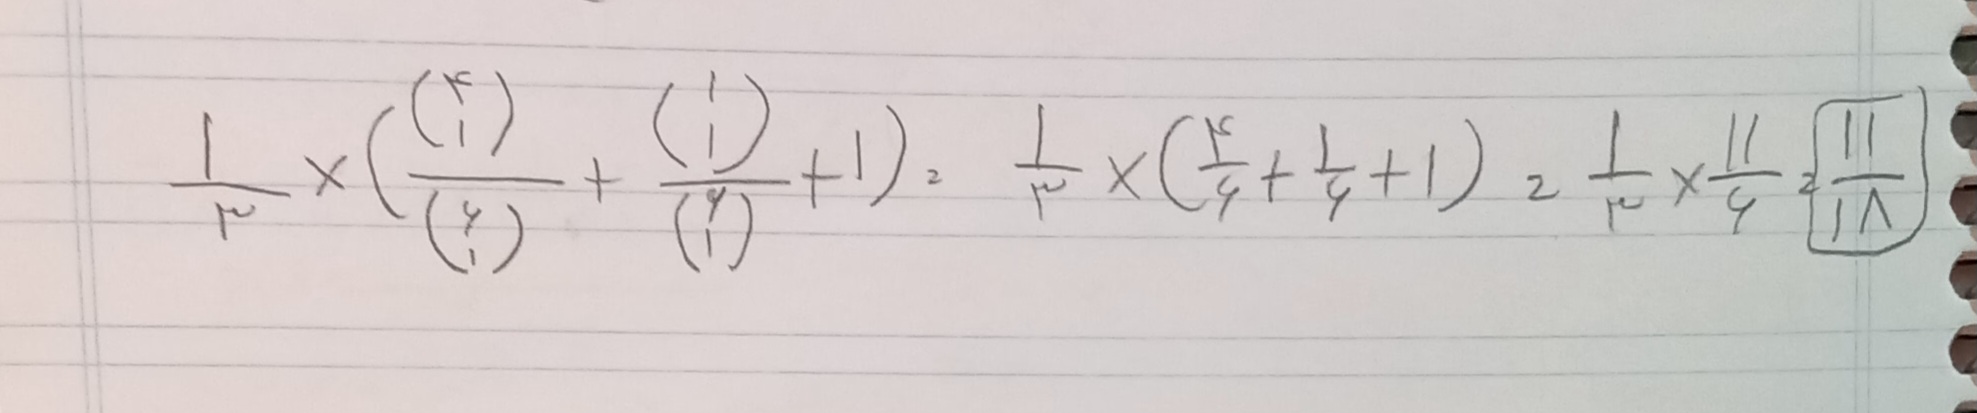 ۱/۳ × ((۴ ۱)/(۶ ۱) + (۱ ۱)/(۶ ۱) + ۱) = ۱/۳ × (۴/۶ + ۱/۶ + ۱) = ۱/۳ × ۱۱/۶ = ۱۱/۱۸